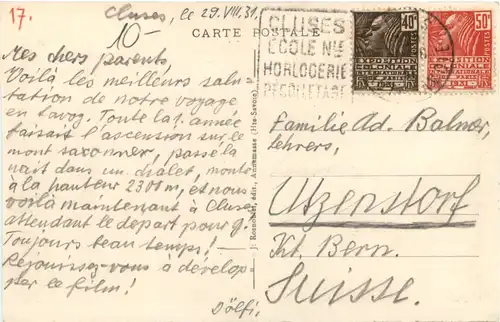 17.
Cluses, le 29.VIII.31.
10-
CARTE POSTALE
CLUSES
ECOLE Nle
HORLOGERIE
DECOLLETAGE
40c
50c
POSTES
POSTES
Mes chers parents,
Voilà les meilleurs salu-
tation de notre voyage
en Savoy. Toute la 1. année
faisait l'ascension sur le
mont saxonner, passé la
nuit dans un châlet, monté
à la hauteur 2300m, et nous
voilà maintenant à Cluses
attendant le depart pour G.
Toujours beau temps! —
Rejouissez-vous à dévelop-
per le film!
Dölfi.
J. Rosnoblet, édit., Annemasse (Hte-Savoie)
Familie Ad. Balmer,
Lehrers,
Utzenstorf
Kt. Bern.
Suisse.